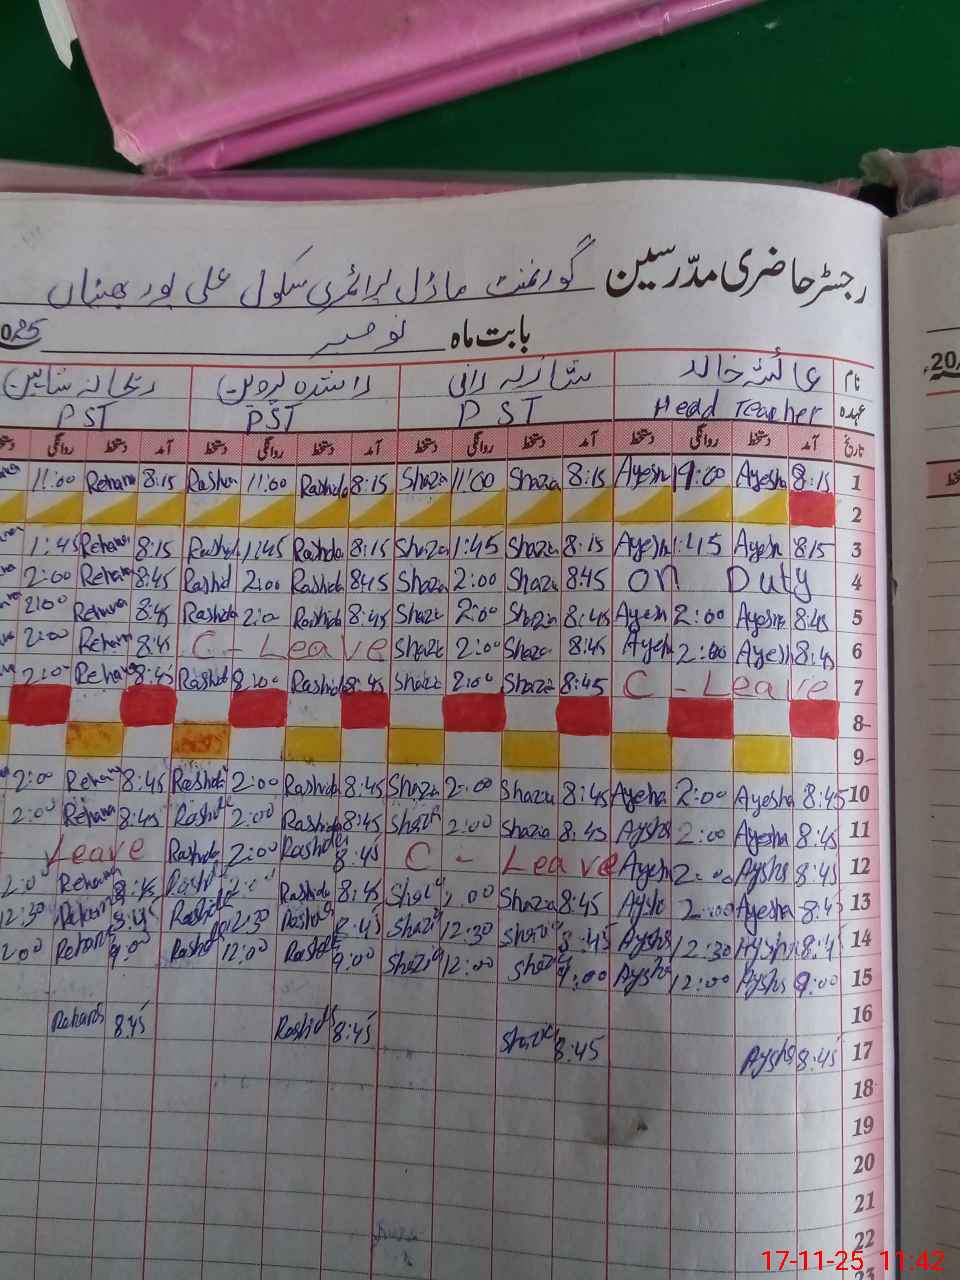 رجسٹر حاضری مدرسین گورنمنٹ ماڈل پرائمری سکول علی پور بھٹیاں
بابت ماہ نومبر 2025
نام عائشہ خالد شازیہ رانی راشدہ پروین ریحانہ شاہین
عہدہ Head Teacher PST PST PST
تاریخ آمد دستخط روانگی دستخط آمد دستخط روانگی دستخط آمد دستخط روانگی دستخط آمد دستخط روانگی
1 8:15 Ayesha Ayesh 8:15 Shazia 11:00 Shazia 8:15 Rashida 11:00 Rashda 8:15 Rehana 11:00
2
3 8:15 Ayesh 1:45 Ayesh 8:15 Shazia 1:45 Shazia 8:15 Rashida 1:45 Rashid 8:15 Rehana 1:45
4 On Duty 8:45 Shazia 2:00 Shazia 8:45 Rashida 2:00 Rashid 8:45 Rehana 2:00
5 8:45 Ayesha 2:00 Ayesh 8:45 Shazia 2:00 Shazia 8:45 Rashida 2:0 Rashida 8:45 Rehana 2:00
6 8:45 Ayesh 2:00 Ayesh 8:45 Shazia 2:00 Shazia C - Leave 8:45 Rehana 2:00
7 C - Leave 8:45 Shazia 2:00 Shazia 8:45 Rashida 2:00 Rashid 8:45 Rehana 2:00
8
9
10 8:45 Ayesha 2:00 Ayesha 8:45 Shazia 2:00 Shazia 8:45 Rashida 2:00 Rashida 8:45 Rehana 2:00
11 8:45 Ayesha 2:00 Aysha 8:45 Shazia 2:00 Shazia 8:45 Rashida 2:00 Rashid 8:45 Rehana 2:00
12 8:45 Aysha 2:00 Ayesh C - Leave 8:45 Rashida 2:00 Rashda Leave
13 8:45 Ayesha 2:00 Aysha 8:45 Shazia 2:00 Shazia 8:45 Rashida 2:00 Rashid 8:45 Rehana 2:00
14 8:45 Aysha 12:30 Aysha 8:45 Shazia 12:30 Shazia 8:45 Rashid 12:30 Rashida 8:45 Rehana 12:30
15 9:00 Aysha 12:00 Aysha 9:00 Shazia 12:00 Shazia 9:00 Rashid 12:00 Rashda 9:00 Rehana 2:00
16
17 8:45 Aysha 8:45 Shazia 8:45 Rashida 8:45 Rehana
18
19
20
21
22
23
17-11-25 11:42